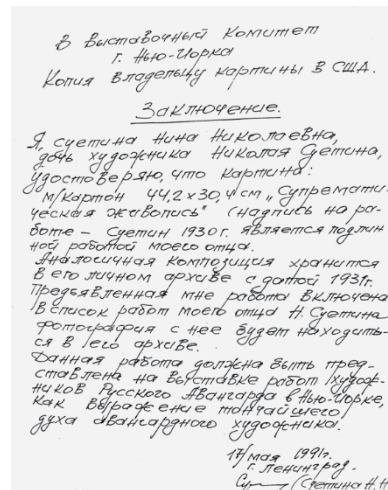 В Выставочный Комитет
г. Нью-Йорка
Копия владельцу картины в США.
Заключение.
Я, Суетина Нина Николаевна,
дочь художника Николая Суетина,
удостоверяю, что картина:
м/картон 44,2х30,4 см „Супремати-
ческая живопись" (надпись на ра-
боте – Суетин 1930 г. является подлин
ной работой моего отца.
Аналогичная композиция хранится
в его личном архиве с датой 1931г.
Предъявленная мне работа включена
в список работ моего отца Н. Суетина
фотография с нее будет находить-
ся в его архиве.
Данная работа должна быть пред-
ставлена на выставке работ худож-
ников Русского Авангарда в Нью-Йорке,
как выражение тончайшего
духа авангардного художника.
17/мая 1991г.
г. Ленинград.
(Суетина Н.Н